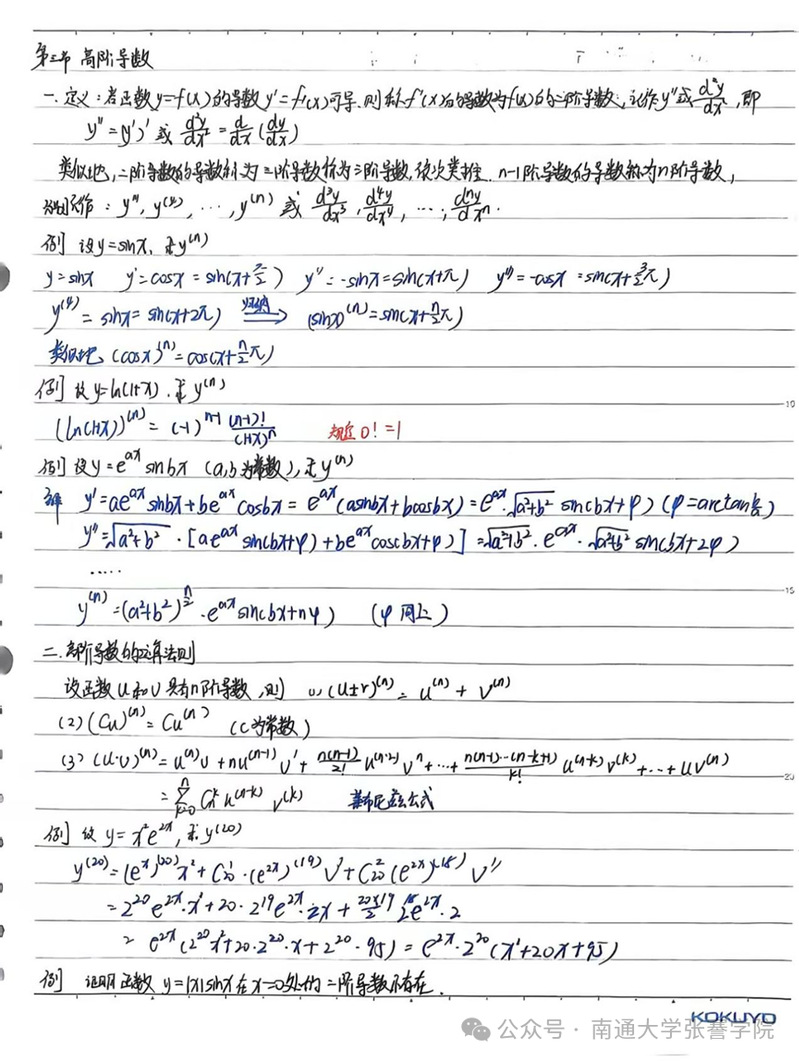 第三节 高阶导数
一. 定义: 若函数 y=f(x) 的导数 y'=f'(x) 可导, 则称 f'(x) 的导数为 f(x) 的二阶导数, 记作 y'' 或 d²y/dx², 即
y''=(y')' 或 d²y/dx² = d/dx (dy/dx)
类似地, 二阶导数的导数称为三阶导数, 依次类推, n-1阶导数的导数称为n阶导数,
分别记作: y''', y⁽⁴⁾, ..., y⁽ⁿ⁾ 或 d³y/dx³, d⁴y/dx⁴, ..., dⁿy/dxⁿ.
例 设y=sinx, 求y⁽ⁿ⁾
y=sinx y'=cosx = sin(x+π/2) y''=-sinx=sin(x+π) y'''=-cosx =sin(x+3/2π)
y⁽⁴⁾= sinx= sin(x+2π) 归纳⟹ (sinx)⁽ⁿ⁾=sin(x+n/2π)
类似地 (cosx)⁽ⁿ⁾=cos(x+n/2π)
例 设 y=ln(1+x). 求 y⁽ⁿ⁾
(ln(1+x))⁽ⁿ⁾= (-1)ⁿ⁻¹ (n-1)!/(1+x)ⁿ 规定 0!=1
10
例 设 y=eᵃˣ sinbx (a,b为常数), 求y⁽ⁿ⁾
解 y'=aeᵃˣ sinbx+beᵃˣ cosbx= eᵃˣ(asinbx+bcosbx)=eᵃˣ·√(a²+b²) sin(bx+φ) (φ=arctan b/a)
y''=√(a²+b²) ·[aeᵃˣ sin(bx+φ)+beᵃˣcos(bx+φ)] =√(a²+b²)·eᵃˣ·√(a²+b²) sin(bx+2φ)
.....
15
y⁽ⁿ⁾=(a²+b²)^(n/2)·eᵃˣsin(bx+nφ) (φ同上)
二. 高阶导数的运算法则
设函数 u和v 具有n阶导数, 则 (1) (u±v)⁽ⁿ⁾= u⁽ⁿ⁾ + v⁽ⁿ⁾
(2) (Cu)⁽ⁿ⁾= Cu⁽ⁿ⁾ (C为常数)
(3) (u·v)⁽ⁿ⁾= u⁽ⁿ⁾v + nu⁽ⁿ⁻¹⁾v' + n(n-1)/2! u⁽ⁿ⁻²⁾v'' +...+ n(n-1)...(n-k+1)/k! u⁽ⁿ⁻ᵏ⁾v⁽ᵏ⁾+...+uv⁽ⁿ⁾
20
= Σₖ₌₀ⁿ Cₙᵏ u⁽ⁿ⁻ᵏ⁾ v⁽ᵏ⁾ 莱布尼兹公式
例 设 y= x²e²ˣ, 求 y⁽²⁰⁾
y⁽²⁰⁾= (eˣ)⁽²⁰⁾x²+C₂₀¹·(e²ˣ)⁽¹⁹⁾v'+C₂₀²(e²ˣ)⁽¹⁸⁾ v''
= 2²⁰e²ˣ·x²+20·2¹⁹e²ˣ·2x + 20×19/2 2¹⁸e²ˣ·2
= e²ˣ(2²⁰x²+20·2²⁰·x+2²⁰·95) = e²ˣ·2²⁰(x²+20x+95)
例 证明函数 y=|x|sinx在x=0处的二阶导数不存在.
KOKUYO
公众号 · 南通大学张謇学院